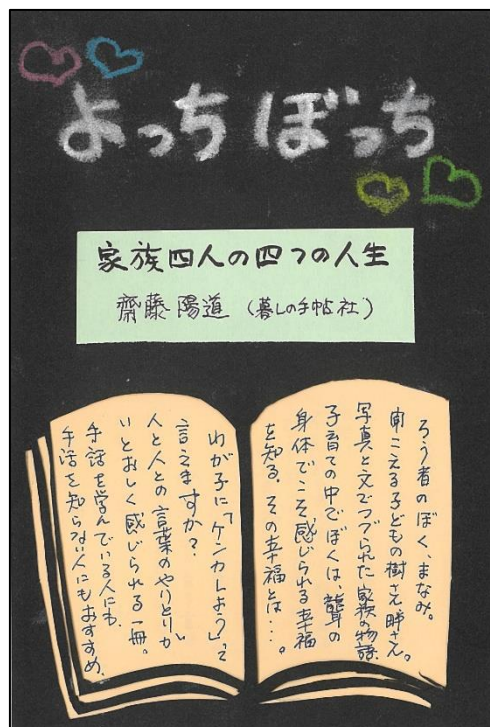 よっちぼっち
家族四人の四つの人生
齋藤陽道（暮しの手帖社）
ろう者のぼく、まなみ。
聞こえる子どもの樹さん、畔さん。
写真と文でつづられた家族の物語。
子育ての中でぼくは、聾の
身体でこそ感じられる幸福
を知る。その幸福とは…。
わが子に「ケンカしよう」って
言えますか？
人と人との言葉のやりとりが
いとおしく感じられる一冊。
手話を学んでいる人にも、
手話を知らない人にもおすすめ。